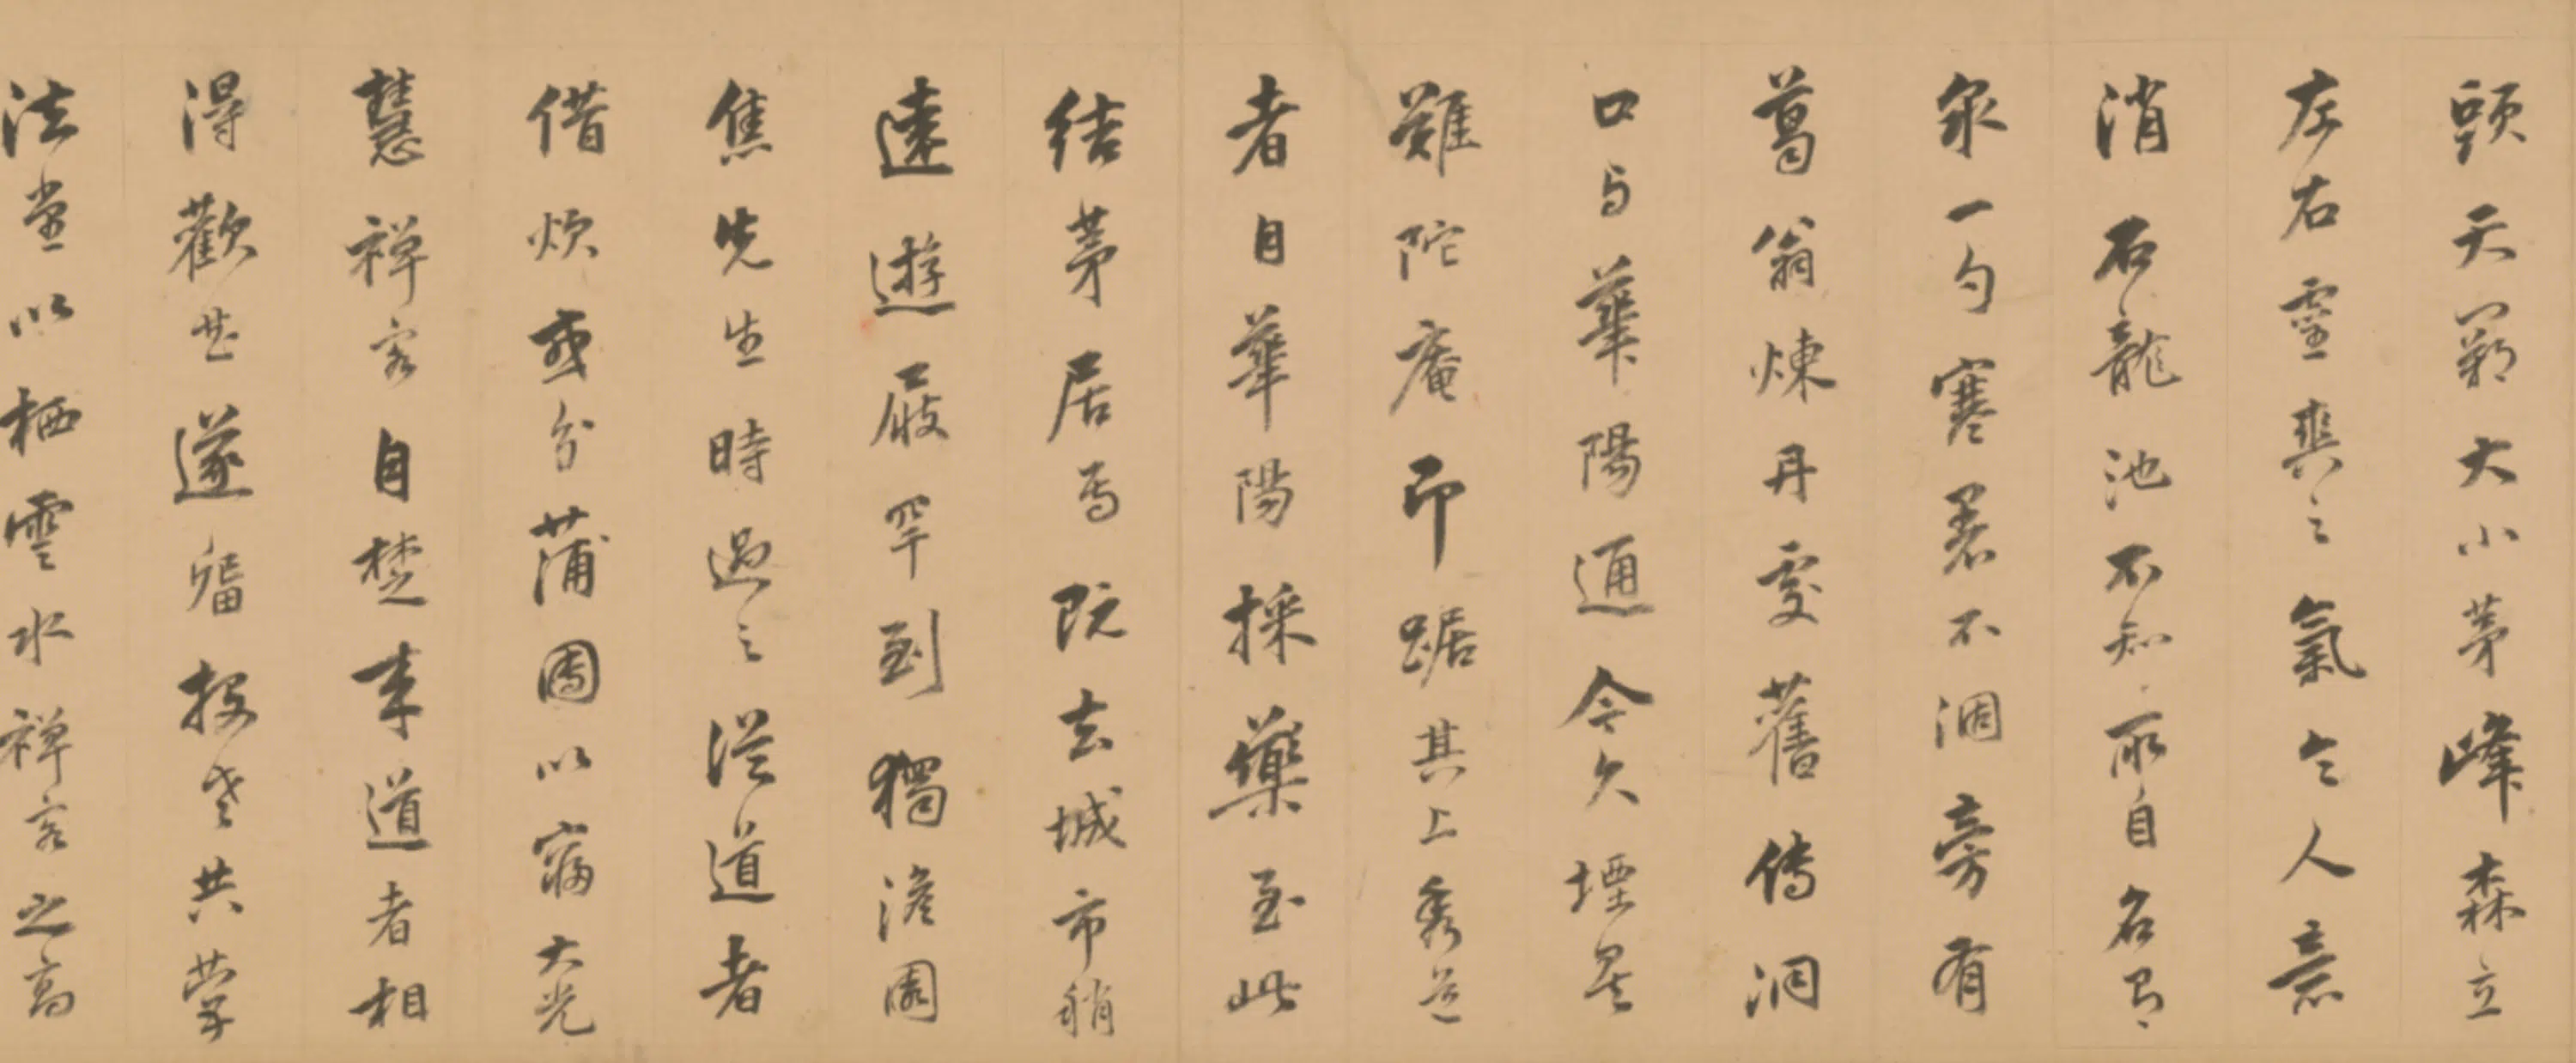 頭天窮大小茅峰森立
左右靈異之氣令人意
消石龍池不知所自名有
泉一勺寒暑不涸旁有
葛翁煉丹處舊傳洞
口与華陽通今久堙矣
難陀庵即踞其上秀道
者自華陽採藥至此
結茅居焉既去城市稍
遠遊屐罕到獨澹園
焦先生時過之從道者
借炊或分蒲團以窩大光
慧禪客自楚来道者相
得歡甚遂留投老共擎
法堂以栖雲水禪客之高